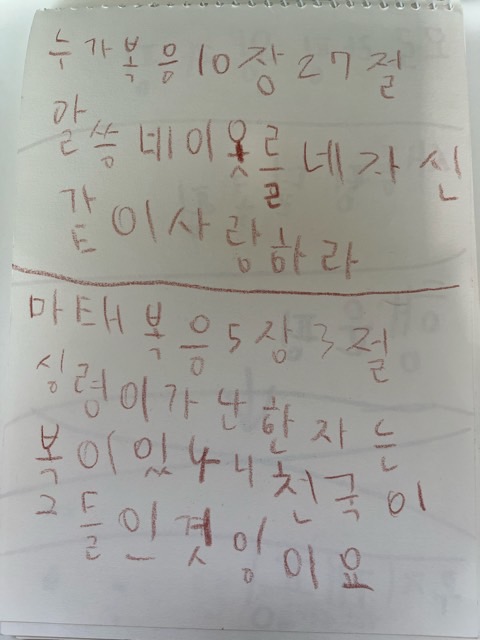 누가복음 10장 27절
말씀 네 이웃를 네 자신
같이 사랑하라
마태복음 5장 3절
심령이 가난한 자는
복이 있나니 천국이
그들인 것임이요